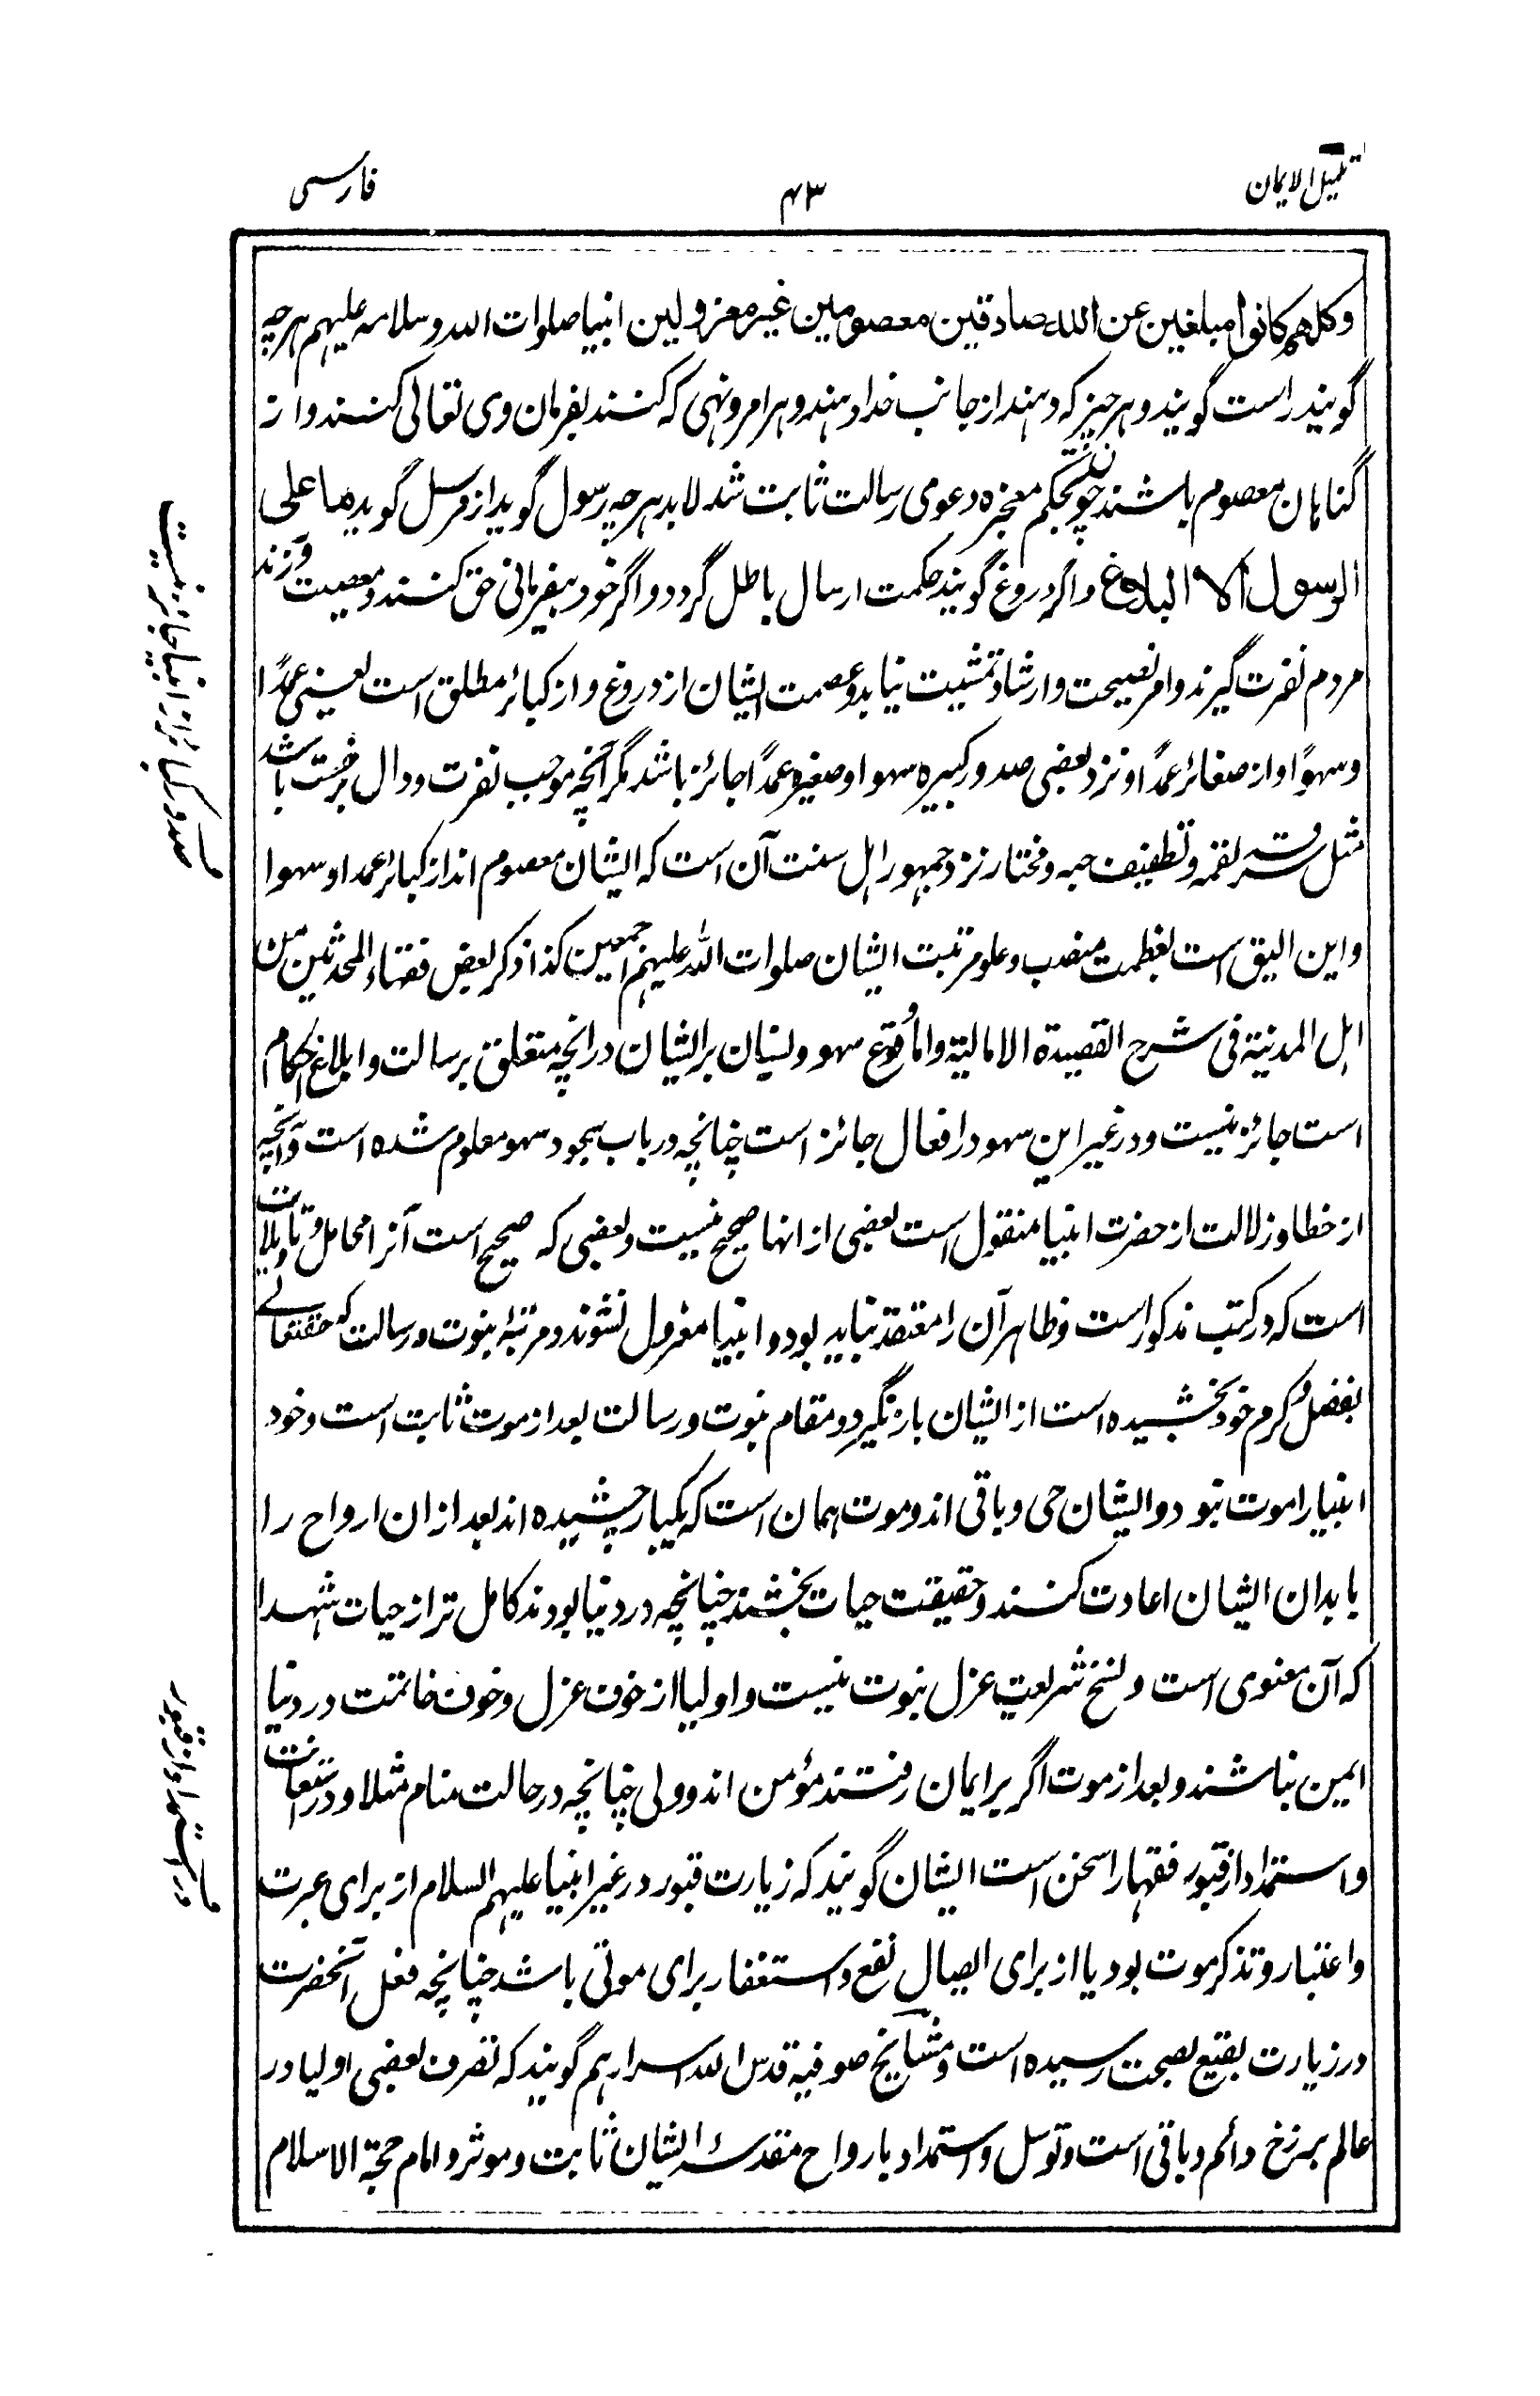 تکمیل الایمان
۴۳
فارسی
وکلهم کانوا مبلغین عن الله صادقین معصومین غیر معزولین انبیا صلوات الله وسلامه علیهم هرچه
گویند راست گویند و هر چیز که دهند از جانب خدا دهند و هر امر و نهی که کنند بفرمان وی تعالی کنند و از
گناهان معصوم باشند چون بحکم معجزه دعوی رسالت ثابت شد لابد هرچه رسول گوید از مرسل گوید ما علی
الرسول الا البلاغ و اگر دروغ گویند حکمت ارسال باطل گردد و اگر خود بیفرمانی حق کنند و معصیت ورزند
مردم نفرت گیرند و امر نصیحت و ارشاد تمشیت نیابد و عصمت ایشان از دروغ و از کبائر مطلق است یعنی عمدًا
و سهوًا و از صغائر عمدًا و نزد بعضی صدور کبیره سهوا و صغیره عمدًا جائز باشد مگر آنچه موجب نفرت و دال بر خست باشد
مثل سرقه لقمه و تطفیف حبه و مختار نزد جمهور اهل سنت آن است که ایشان معصوم اند از کبائر عمدا و سهوا
و این الیق است بعظمت منصب و علو مرتبت ایشان صلوات الله علیهم اجمعین کذا ذکر بعض فقهاء المحدثین من
اهل المدینة فی شرح القصیدة الامالیة و اما وقوع سهو و نسیان بر ایشان در انچه متعلق برسالت و ابلاغ احکام
است جائز نیست و در غیر این سهو در افعال جائز است چنانچه در باب سجود سهو معلوم شده است و آنچه
از خطا و زلالت از حضرت انبیا منقول است بعضی از انها صحیح نیست و بعضی که صحیح است آنرا محامل و تاویلات
است که در کتب مذکور است و ظاهر آن را معتقد نباید بود و انبیا معزول نشوند و مرتبهٔ نبوت و رسالت که حقتعالے
بفضل و کرم خود بخشیده است از ایشان باز نگیرد و مقام نبوت و رسالت بعد از موت ثابت است و خود
انبیا را موت نبود و ایشان حی و باقی اند و موت همان است که یکبار چشیده اند بعد از ان ارواح را
بابدان ایشان اعادت کنند و حقیقت حیات بخشند چنانچه در دنیا بودند کامل تر از حیات شهدا
که آن معنوی است و نسخ شریعت عزل نبوت نیست و اولیا از خوف عزل و خوف خاتمت در دنیا
ایمن نباشند و بعد از موت اگر بر ایمان رفتند مؤمن اند و ولی چنانچه در حالت منام مثلا و در استعانت
و استمداد از قبور فقها را سخن است ایشان گویند که زیارت قبور در غیر انبیا علیهم السلام از برای عبرت
و اعتبار و تذکر موت بود یا از برای ایصال نفع و استغفار برای موتی باشد چنانچه فعل آنحضرت
در زیارت بقیع بصحت رسیده است و مشایخ صوفیه قدس الله اسرارهم گویند که تصرف بعضی اولیا در
عالم برزخ دائم و باقی است و توسل و استمداد بارواح مقدسهٔ ایشان ثابت و موثر و امام حجة الاسلام
صدور کبائر از انبیا جائز نیست
در استمداد از قبور